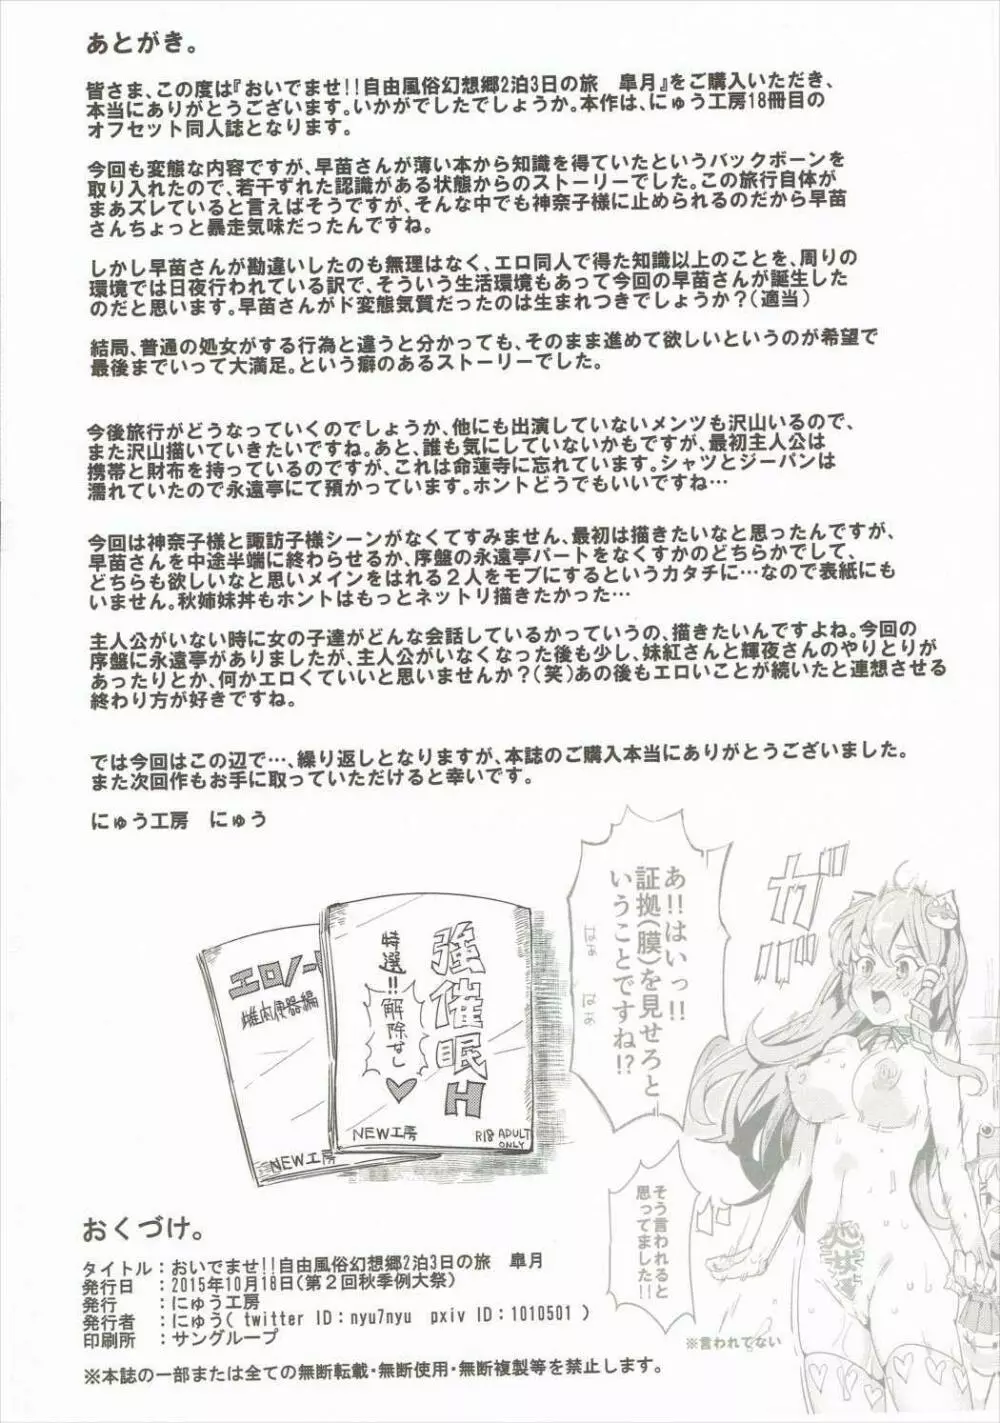 あとがき。
皆さま、この度は『おいでませ!!自由風俗幻想郷2泊3日の旅　皐月』をご購入いただき、
本当にありがとうございます。いかがでしたでしょうか。本作は、にゅう工房18冊目の
オフセット同人誌となります。
今回も変態な内容ですが、早苗さんが薄い本から知識を得ていたというバックボーンを
取り入れたので、若干ずれた認識がある状態からのストーリーでした。この旅行自体が
まあズレていると言えばそうですが、そんな中でも神奈子様に止められるのだから早苗
さんちょっと暴走気味だったんですね。
しかし早苗さんが勘違いしたのも無理はなく、エロ同人で得た知識以上のことを、周りの
環境では日夜行われている訳で、そういう生活環境もあって今回の早苗さんが誕生した
のだと思います。早苗さんがド変態気質だったのは生まれつきでしょうか?(適当)
結局、普通の処女がする行為と違うと分かっても、そのまま進めて欲しいというのが希望で
最後までいって大満足。という癖のあるストーリーでした。
今後旅行がどうなっていくのでしょうか、他にも出演していないメンツも沢山いるので、
また沢山描いていきたいですね。あと、誰も気にしていないかもですが、最初主人公は
携帯と財布を持っているのですが、これは命蓮寺に忘れています。シャツとジーパンは
濡れていたので永遠亭にて預かっています。ホントどうでもいいですね…
今回は神奈子様と諏訪子様シーンがなくてすみません、最初は描きたいなと思ったんですが、
早苗さんを中途半端に終わらせるか、序盤の永遠亭パートをなくすかのどちらかでして、
どちらも欲しいなと思いメインをはれる2人をモブにするというカタチに…なので表紙にも
いません。秋姉妹丼もホントはもっとネットリ描きたかった…
主人公がいない時に女の子達がどんな会話しているかっていうの、描きたいんですよね。今回の
序盤に永遠亭がありましたが、主人公がいなくなった後も少し、妹紅さんと輝夜さんのやりとりが
あったりとか、何かエロくていいと思いませんか?(笑)あの後もエロいことが続いたと連想させる
終わり方が好きですね。
では今回はこの辺で…、繰り返しとなりますが、本誌のご購入本当にありがとうございました。
また次回作もお手に取っていただけると幸いです。
にゅう工房　にゅう
あ!!はいっ!!
証拠(膜)を見せろと
いうことですね!?
はぁ
はぁ
ガバッ
強催眠H
特選!!解除なし
NEW工房
R18 ADULT
ONLY
エロノー
雌肉便器編
NEW工房
そう言われると
思ってました!!
処女
※言われてない
おくづけ。
タイトル：おいでませ!!自由風俗幻想郷2泊3日の旅　皐月
発行日　：2015年10月18日(第2回秋季例大祭)
発行　　：にゅう工房
発行者　：にゅう( twitter ID：nyu7nyu　pxiv ID：1010501 )
印刷所　：サングループ
※本誌の一部または全ての無断転載・無断使用・無断複製等を禁止します。